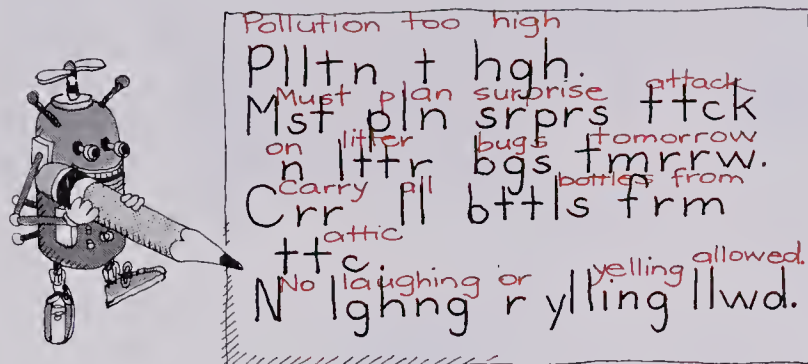 Pollution too high
Plltn t hgh.
Must plan surprise attack
Mst pln srprs ttck
on litter bugs tomorrow
n lttr bgs tmrrw.
Carry all bottles from
Crr ll bttls frm
attic
ttc.
No laughing or yelling allowed.
N lghng r ylling llwd.